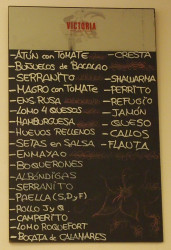 VICTORIA
-ATÚN CON TOMATE
-BUÑUELOS DE BACALAO
-SERRANITO
-MAGRO CON TOMATE
-ENS. RUSA
-LOMO 4 QUESOS
-HAMBURGUESA
-HUEVOS RELLENOS
-SETAS EN SALSA
-BOQUERONES
-ALBÓNDIGAS
-SERRANITO
-PAELLA (S,D y F)
-POLLO J y Q
-CAMPERITO
-LOMO ROQUEFORT
-BOCATA DE CALAMARES
-CRESTA
-SHAWARMA
-PERRITO
-REFUGIO
-JAMÓN
-QUESO
-CALLOS
-FLAUTA